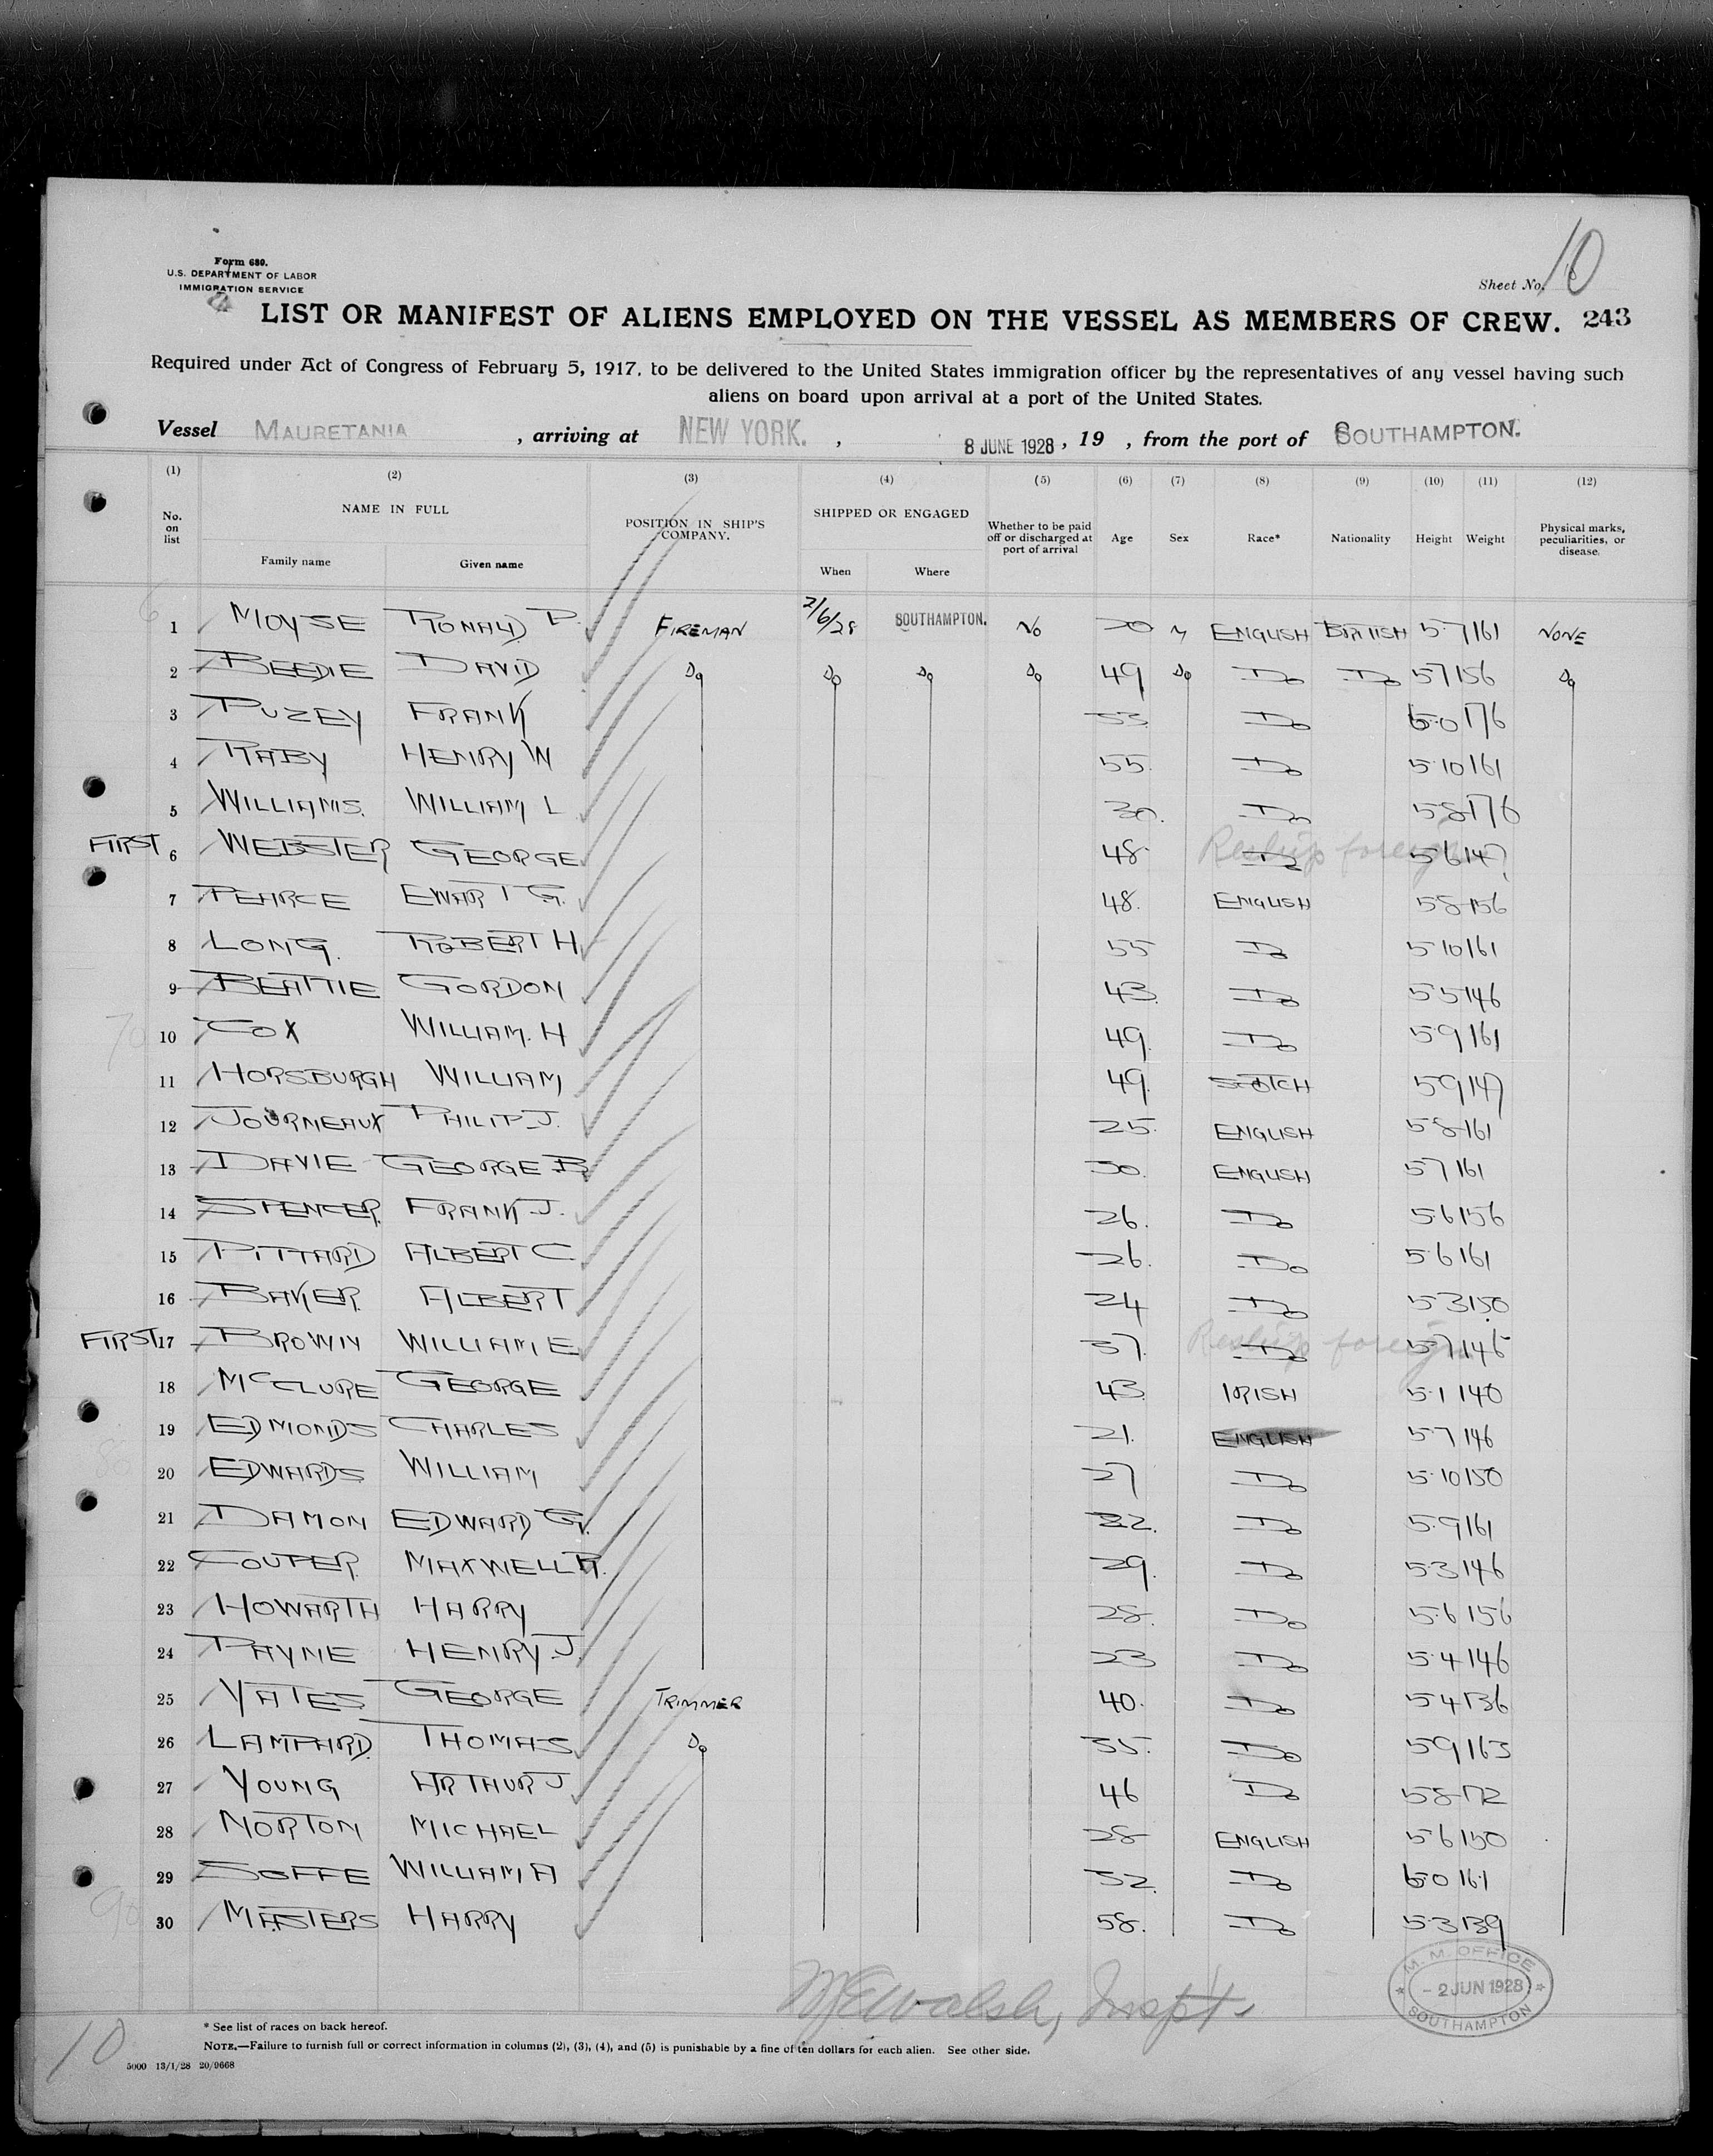 Form 680.
U.S. DEPARTMENT OF LABOR
IMMIGRATION SERVICE
Sheet No. 10
LIST OR MANIFEST OF ALIENS EMPLOYED ON THE VESSEL AS MEMBERS OF CREW. 243
Required under Act of Congress of February 5, 1917, to be delivered to the United States immigration officer by the representatives of any vessel having such
aliens on board upon arrival at a port of the United States.
Vessel MAURETANIA, arriving at NEW YORK., 8 JUNE 1928, 19 , from the port of SOUTHAMPTON.
(1) (2) (3) (4) (5) (6) (7) (8) (9) (10) (11) (12)
No. on list NAME IN FULL POSITION IN SHIP'S COMPANY. SHIPPED OR ENGAGED Whether to be paid off or discharged at port of arrival Age Sex Race* Nationality Height Weight Physical marks, peculiarities, or disease.
Family name Given name When Where
1 MOYSE RONALD P. FIREMAN 2/6/28 SOUTHAMPTON. No 20 M ENGLISH BRITISH 5.7 161 NONE
2 BEEDIE DAVID Do Do Do Do 49 Do Do Do 5 7 156 Do
3 PUZEY FRANK 53 Do 6.0 176
4 RABY HENRY W 55. Do 5.10 161
5 WILLIAMS. WILLIAM L 30. Do 5 8 176
FIRST 6 WEBSTER GEORGE 48 Do Reship foreign 5 6 147
7 PEARCE EWART G. 48. ENGLISH 5 8 156
8 LONG. ROBERT H 55 Do 5 10 161
9 BEATTIE GORDON 43. Do 5 5 146
70
10 COX WILLIAM. H 49. Do 5 9 161
11 HORSBURGH WILLIAM 49. SCOTCH 5 9 147
12 JOURNEAUX PHILIP J. 25. ENGLISH 5 8 161
13 DAVIE GEORGE B 30. ENGLISH 5 7 161
14 SPENCER. FRANK J. 26. Do 5.6 156
15 PITTARD ALBERT C 26. Do 5.6 161
16 BAKER. ALBERT 24 Do 5 3 150
FIRST 17 BROWN WILLIAM E 37. Do Reship foreign 5 7 146
18 McCLURE GEORGE 43. IRISH 5.1 140
19 EDMONDS CHARLES 21. ENGLISH 5 7 146
80
20 EDWARDS WILLIAM 27 Do 5.10 150
21 DAMON EDWARD G. 32. Do 5.9 161
22 COUPER. MAXWELL R. 29. Do 5.3 146
23 HOWARTH HARRY 28. Do 5.6 156
24 PAYNE HENRY J. 23 Do 5.4 146
25 YATES GEORGE TRIMMER 40. Do 5 4 136
26 LAMPARD. THOMAS Do 35. Do 5 9 163
27 YOUNG ARTHUR J 46 Do 5 8 172
28 NORTON MICHAEL 28 ENGLISH 5 6 150
29 SOFFE WILLIAM A 32. Do 6.0 161
90
30 MASTERS HARRY 58. Do 5.3 139
Walsh, Inspt.
M. M. OFFICE
- 2 JUN 1928
SOUTHAMPTON
* See list of races on back hereof.
NOTE.—Failure to furnish full or correct information in columns (2), (3), (4), and (5) is punishable by a fine of ten dollars for each alien. See other side.
10
5000 13/1/28 20/9668